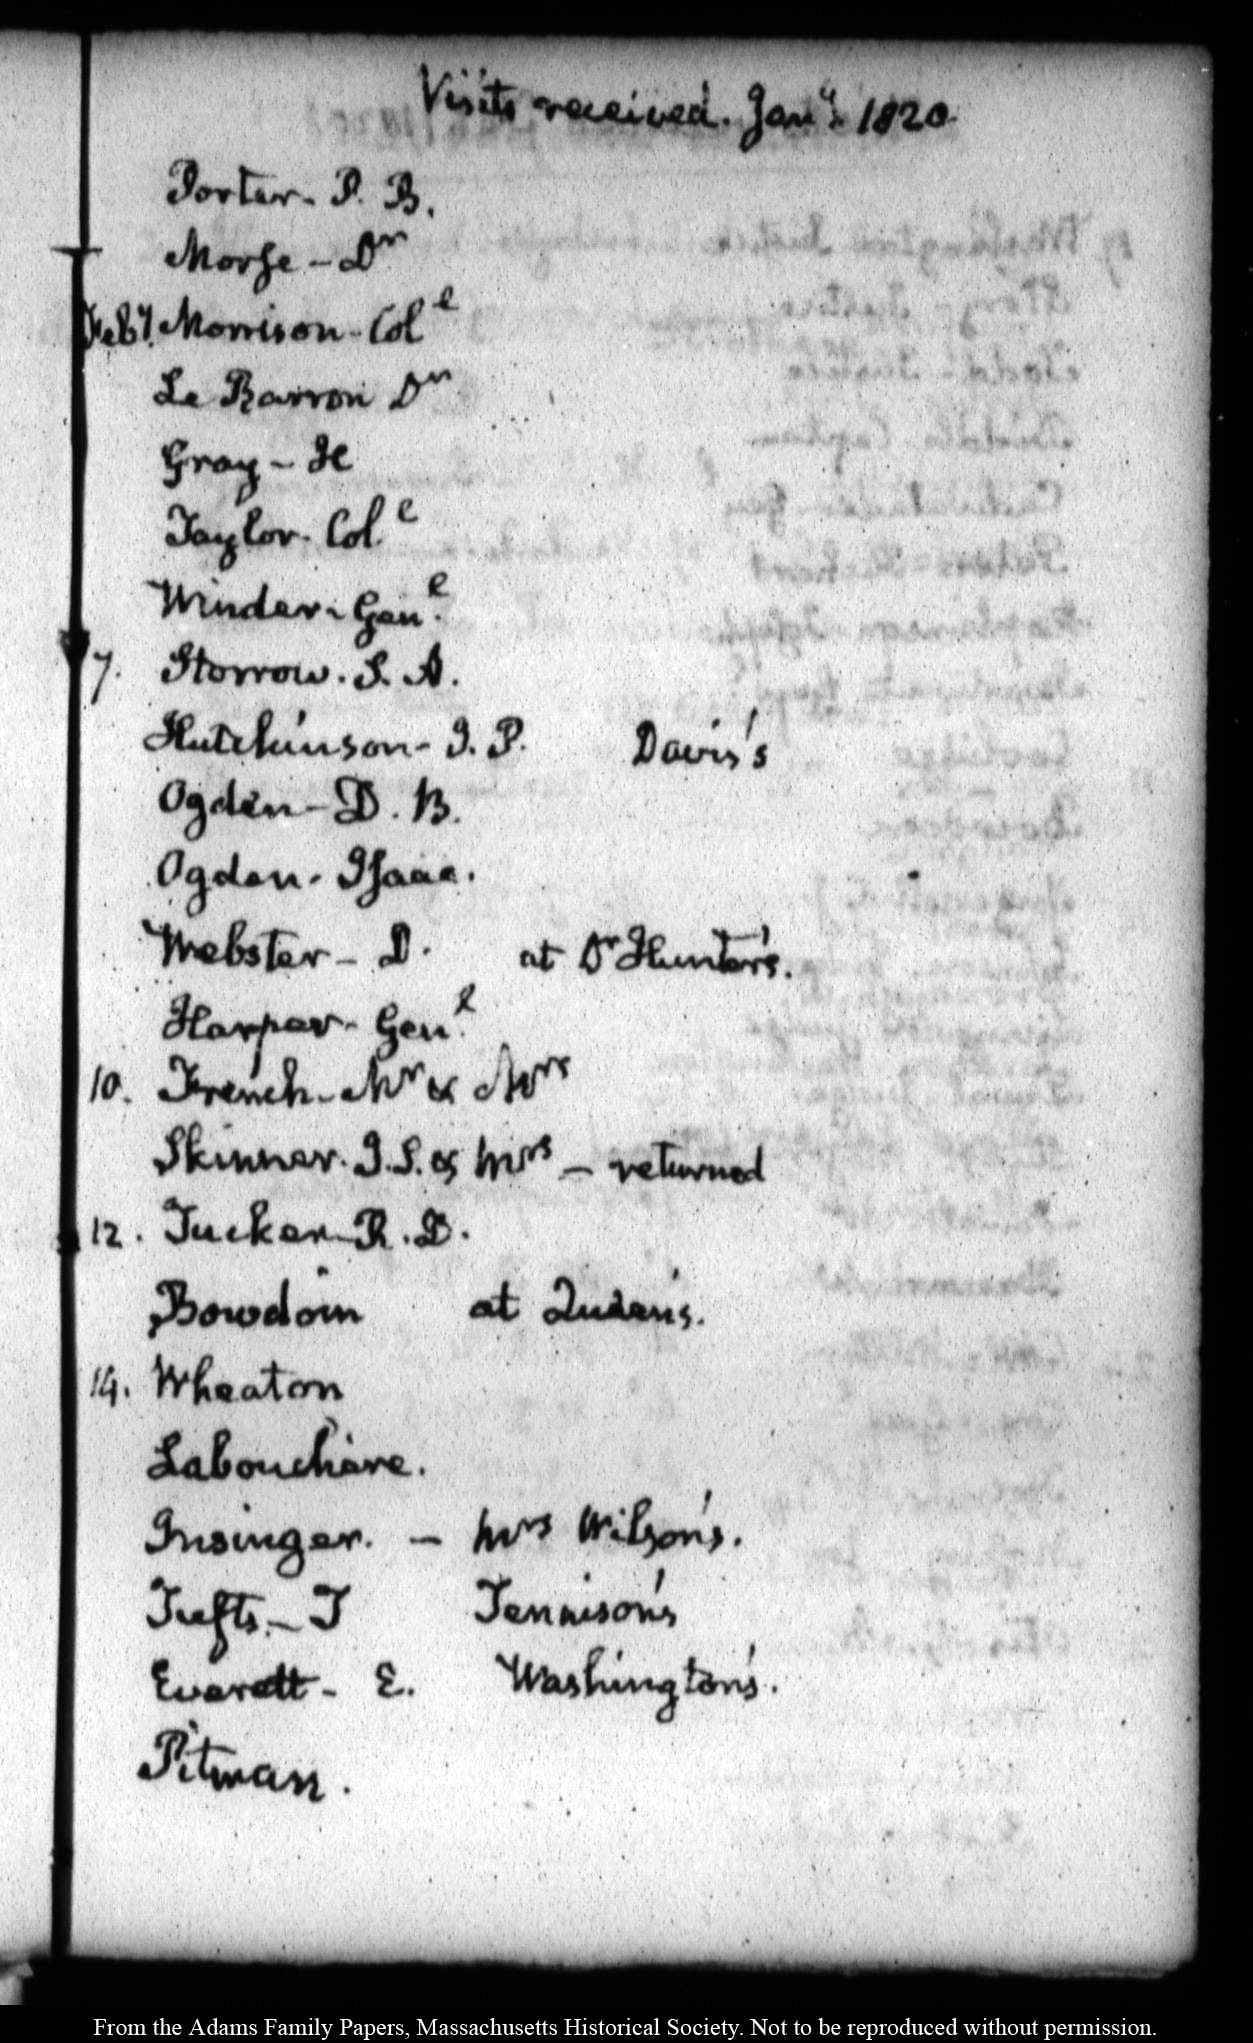 Visits received. Jany. 1820.
Porter - P. B.
Morse - Dr
Feby. Morrison - Col.l
Le Barron Dr
Gray - H
Taylor - Col.l
Winder - Gen.l
7. Storrow. S. A.
Hutchinson - I. P. Davis's
Ogden - D. B.
Ogden - Isaac.
Webster - D. at Dr Hunter's.
Harper - Gen.l
10. French - Mr & Mrs
Skinner. J. S. & Mrs - returned
12. Tucker - R. D.
Bowdoin at Queen's.
14. Wheaton
Labouchère.
Insinger. - Mrs Wilson's.
Tufts - J Tennison's
Everett - E. Washington's.
Pitman.
From the Adams Family Papers, Massachusetts Historical Society. Not to be reproduced without permission.